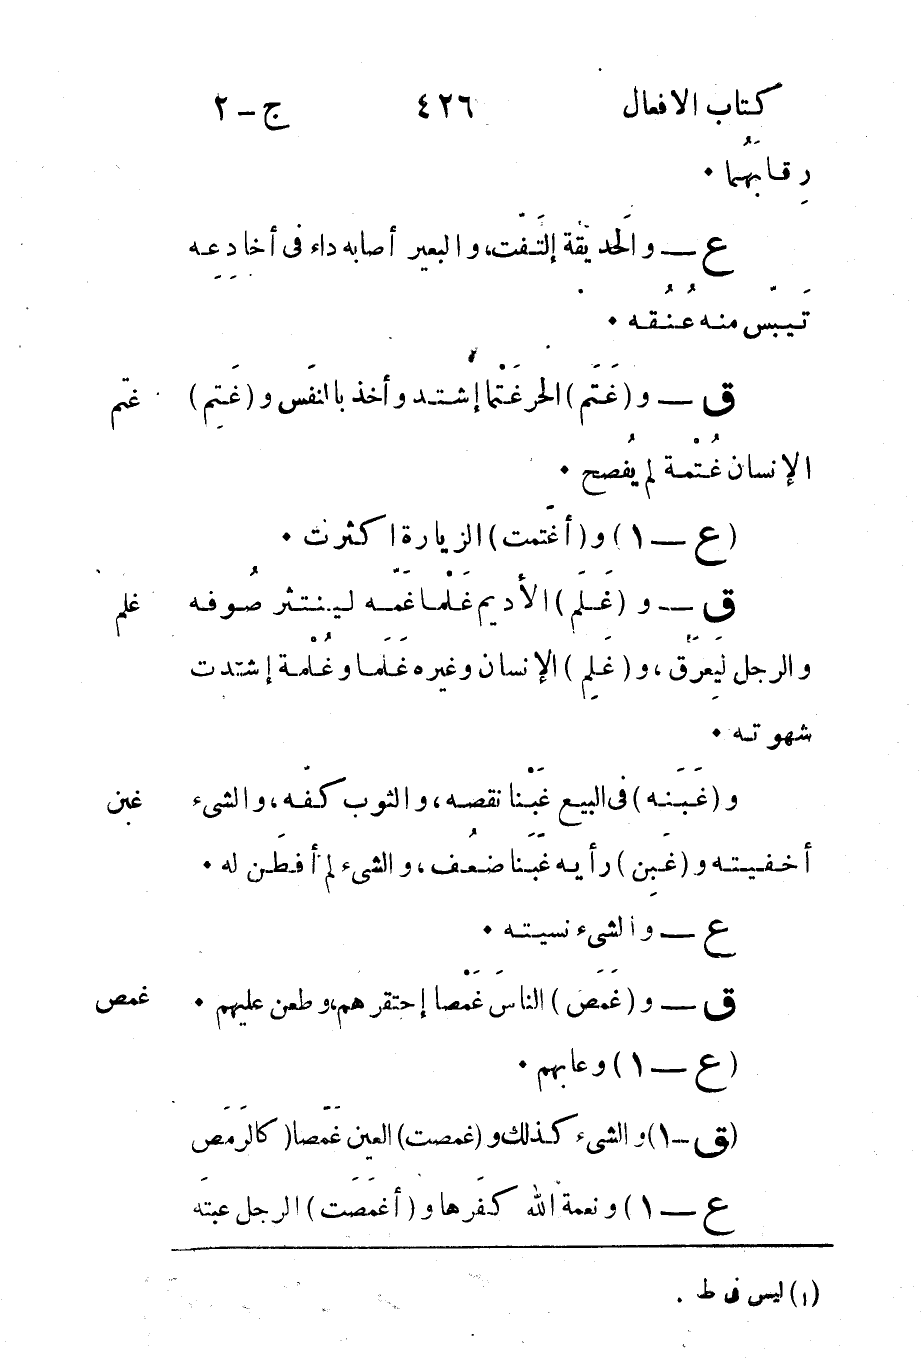 كتاب الافعال ٤٢٦ ج – ٢
رِقابَهُما ٠
ع – والحَديقة إلتَفّت، والبعير أصابه داء فى أخادِعِه
تَيبّس منه عُنُقه ٠
ق – و (غَتَم) الحر غَتْما إشتد وأخذ باانفَس و (غَتِم) غتم
الإنسان غُتْمة لم يُفصح ٠
(ع – ١) و (أغتمت) الزيارة اكثرت ٠
ق – و (غَلَم) الأديم غَلْما غَمّه لينتثر صُوفه غلم
والرجل لِيَعرَق، و (غَلِم) الإنسان وغيره غَلَما وغُلْمة إشتدت
شهوته ٠
و (غَبَنه) فى البيع غَبْنا نقصه، والثوب كفّه، والشىء غبن
أخفيته و (غَبِن) رأيه غَبَنا ضعُف، والشىء لم أفطَن له ٠
ع – والشىء نسيته ٠
ق – و (غَمَصَ) الناسَ غَمْصا إحتقرهم، وطعن عليهم ٠ غمص
(ع – ١) وعابهم ٠
(ق – ١) والشىء كذلك و (غمصت) العين غَمَصا (كالرَمَص
ع – ١) ونعمة الله كفَرها و (أغمَصَت) الرجل عبته
(١) ليس فى ط .